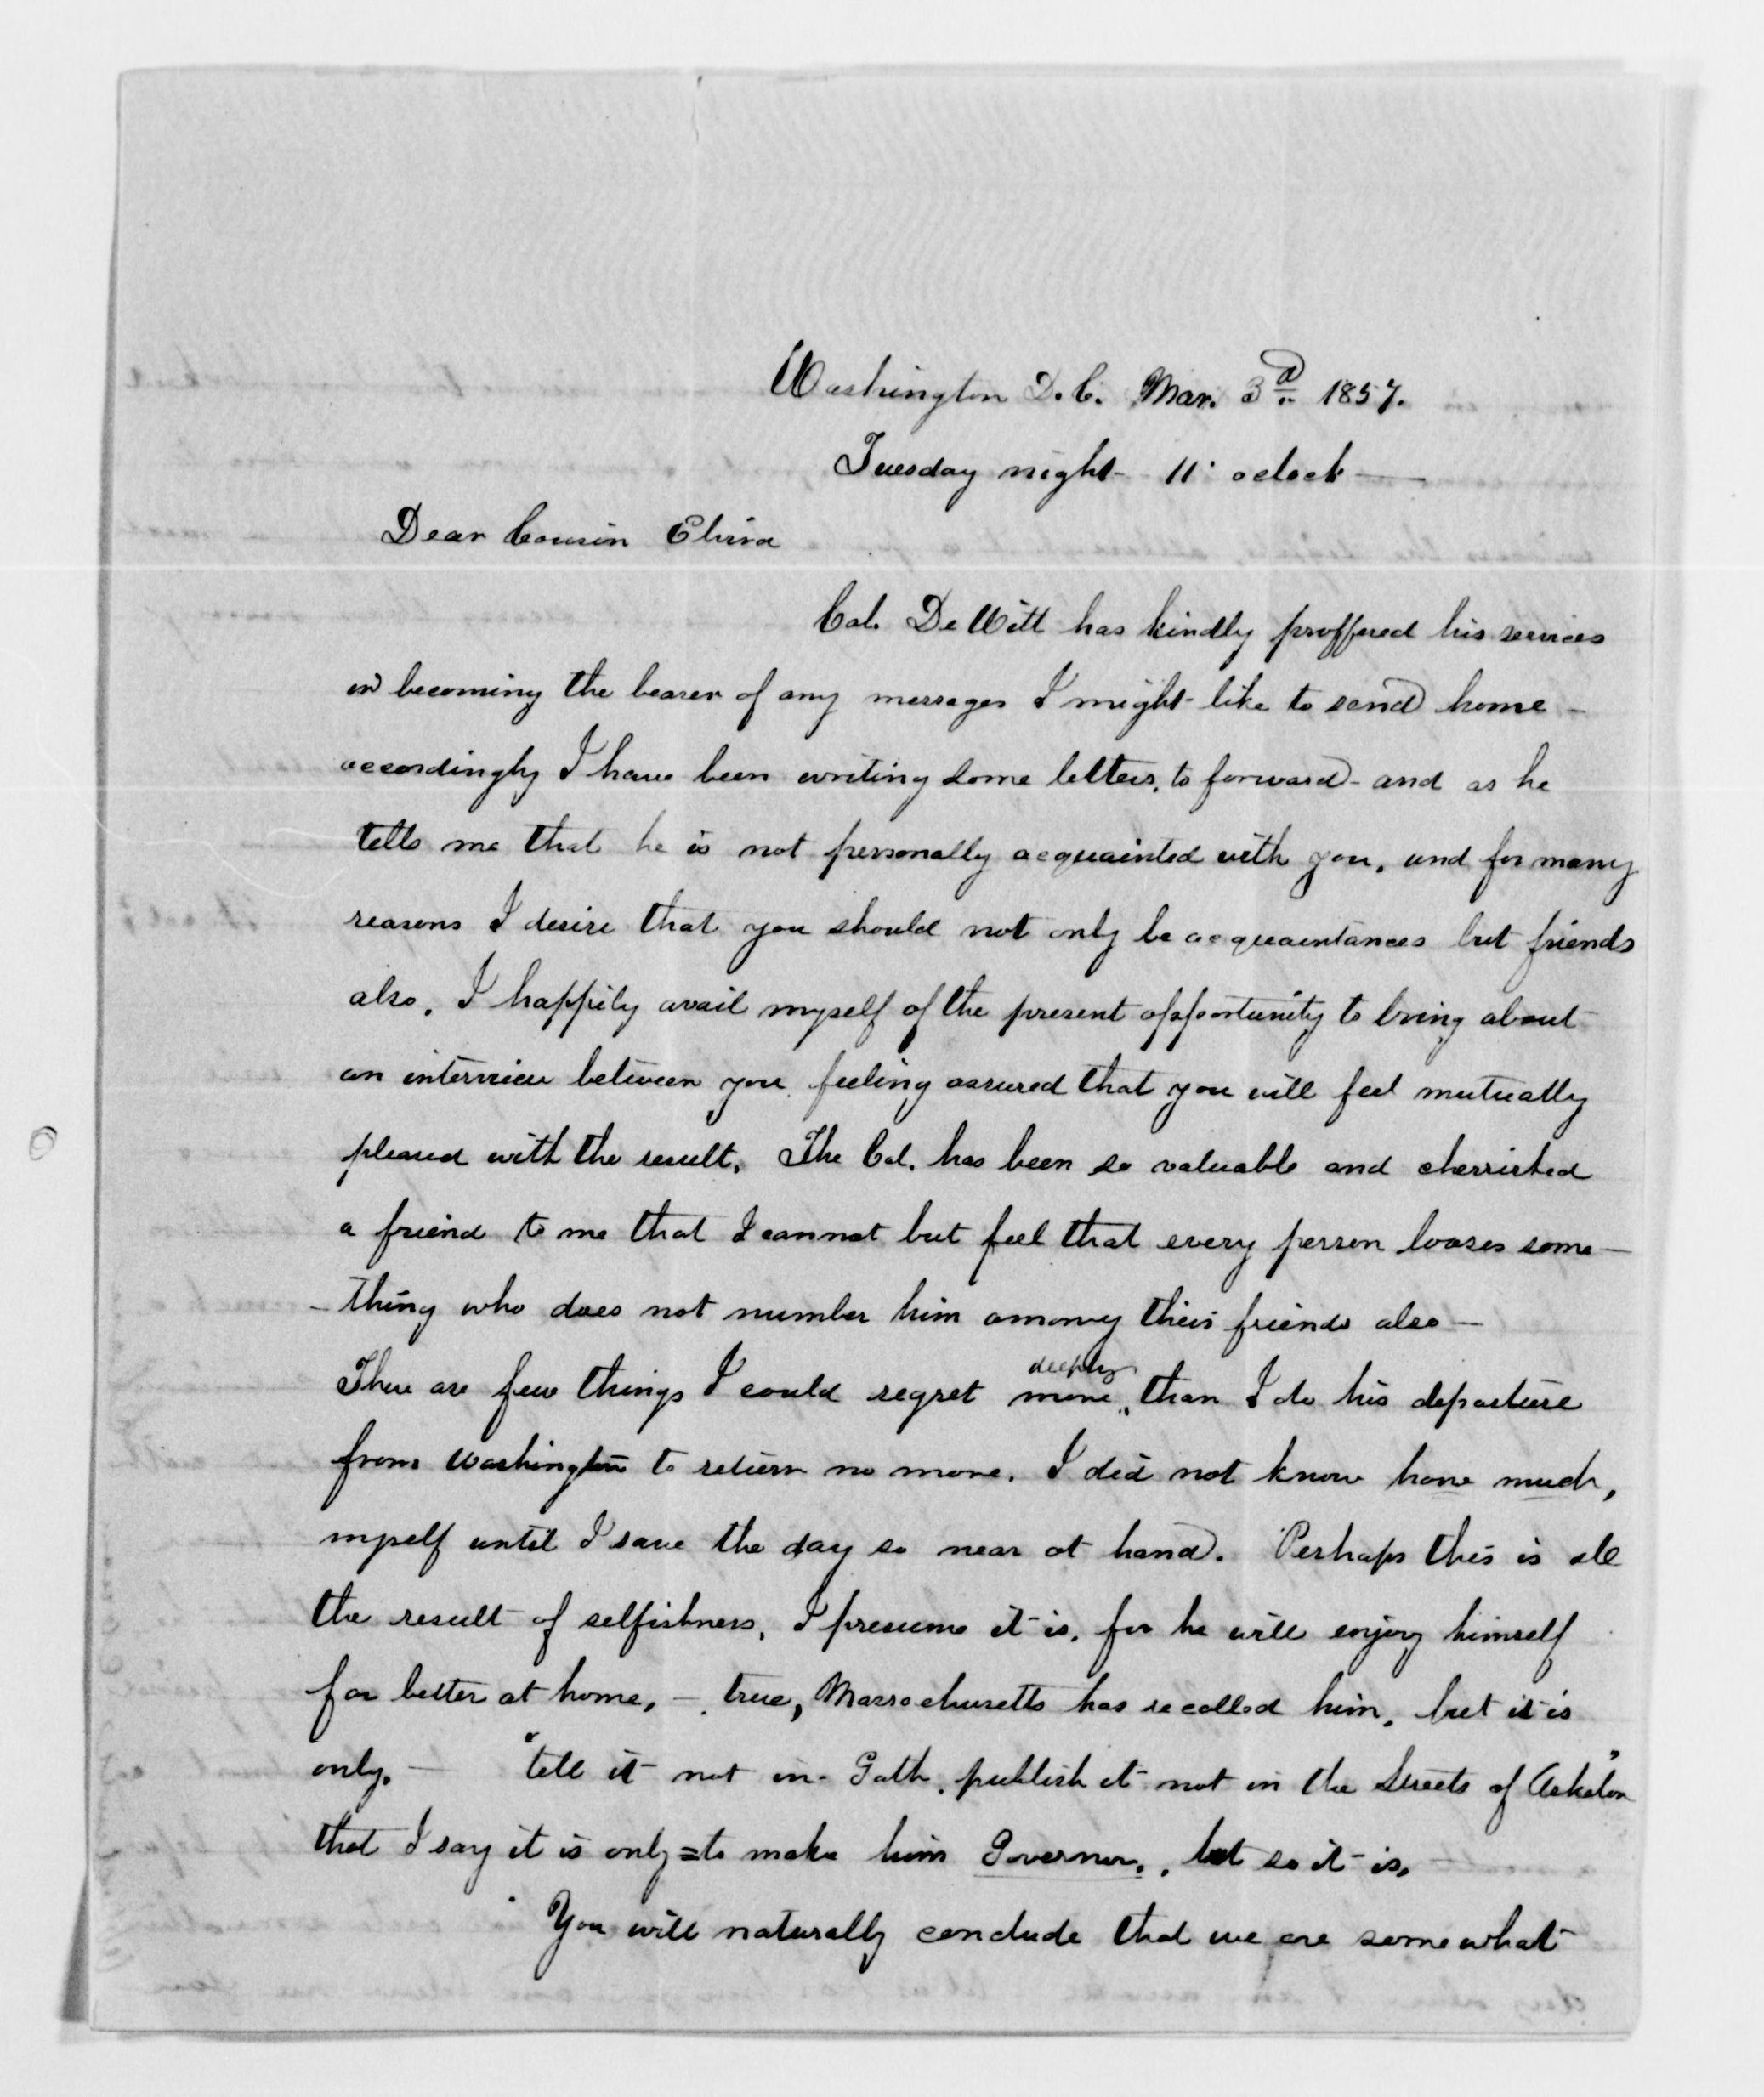 Washington D.C. Mar. 3d 1857.
Tuesday night - 11' oclock —
Dear Cousin Elvira
Col. DeWitt has kindly proffered his services
in becoming the bearer of any messages I might like to send home -
accordingly I have been writing some letters, to forward - and as he
tells me that he is not personally acquainted with you, and for many
reasons I desire that you should not only be acquaintances but friends
also, I happily avail myself of the present opportunity to bring about
an interview between you, feeling assured that you will feel mutually
pleased with the result. The Col. has been so valuable and cherrished
a friend to me that I cannot but feel that every person looses some-
-thing who does not number him among their friends also —
There are few things I could regret more deeply, than I do his departure
from Washington to return no more. I did not know how much,
myself until I saw the day so near at hand. Perhaps this is all
the result of selfishness, I presume it is, for he will enjoy himself
far better at home, - true, Massachusetts has recalled him, but it is
only, — "tell it not in Gath, publish it not in the Streets of Askelon"
that I say it is only = to make him Governor, but so it is.
You will naturally conclude that we are somewhat